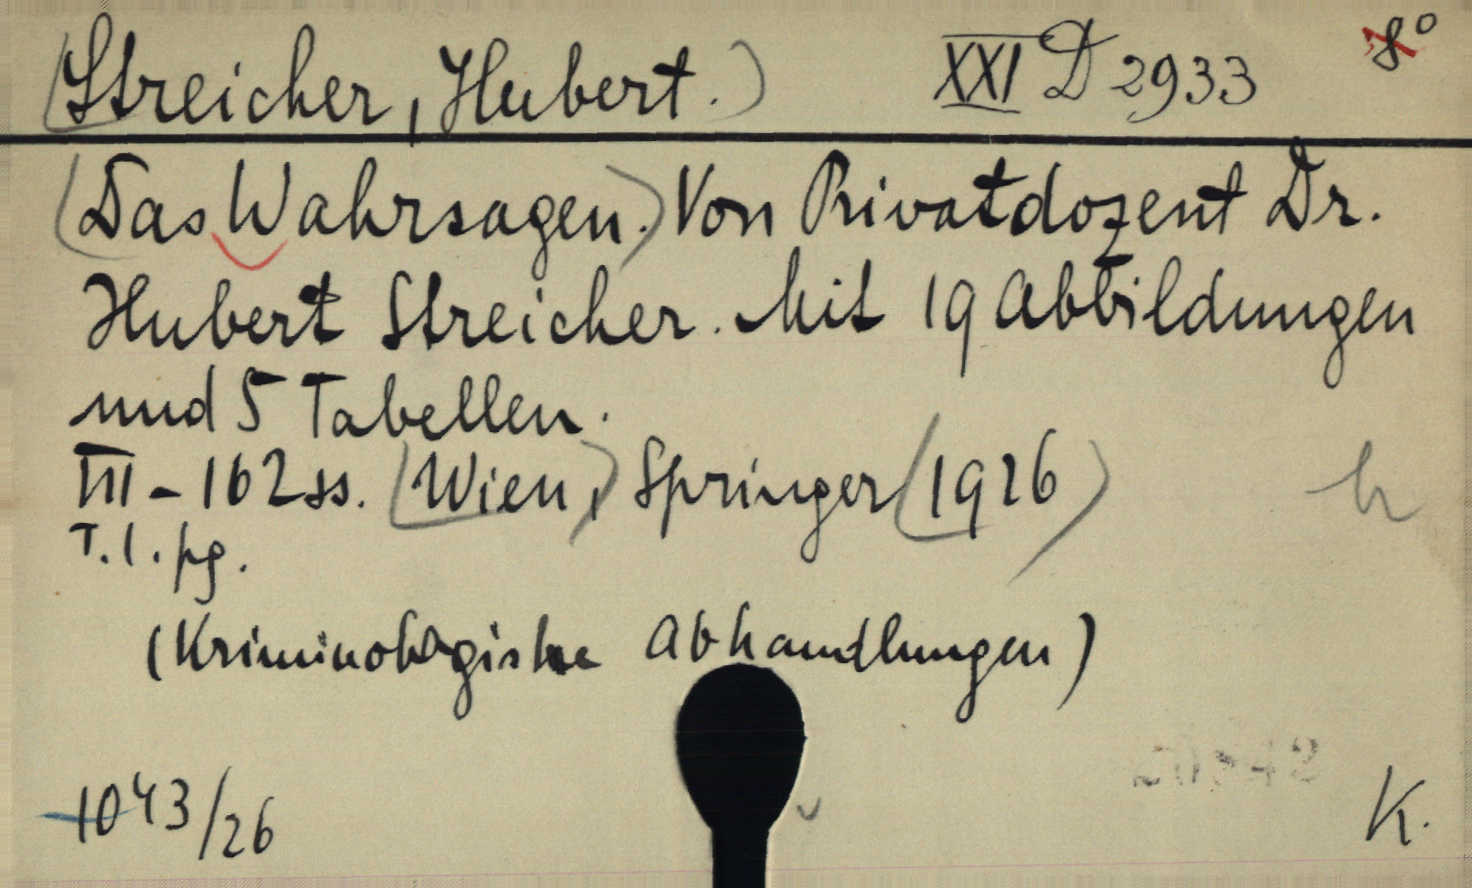 (Streicher, Hubert.) XXI D 2933 8°
(Das Wahrsagen.) Von Privatdozent Dr.
Hubert Streicher. Mit 19 Abbildungen
und 5 Tabellen.
III - 162 ss. (Wien), Springer (1926)
T. l. pg.
(Kriminologische Abhandlungen)
1043/26
K.